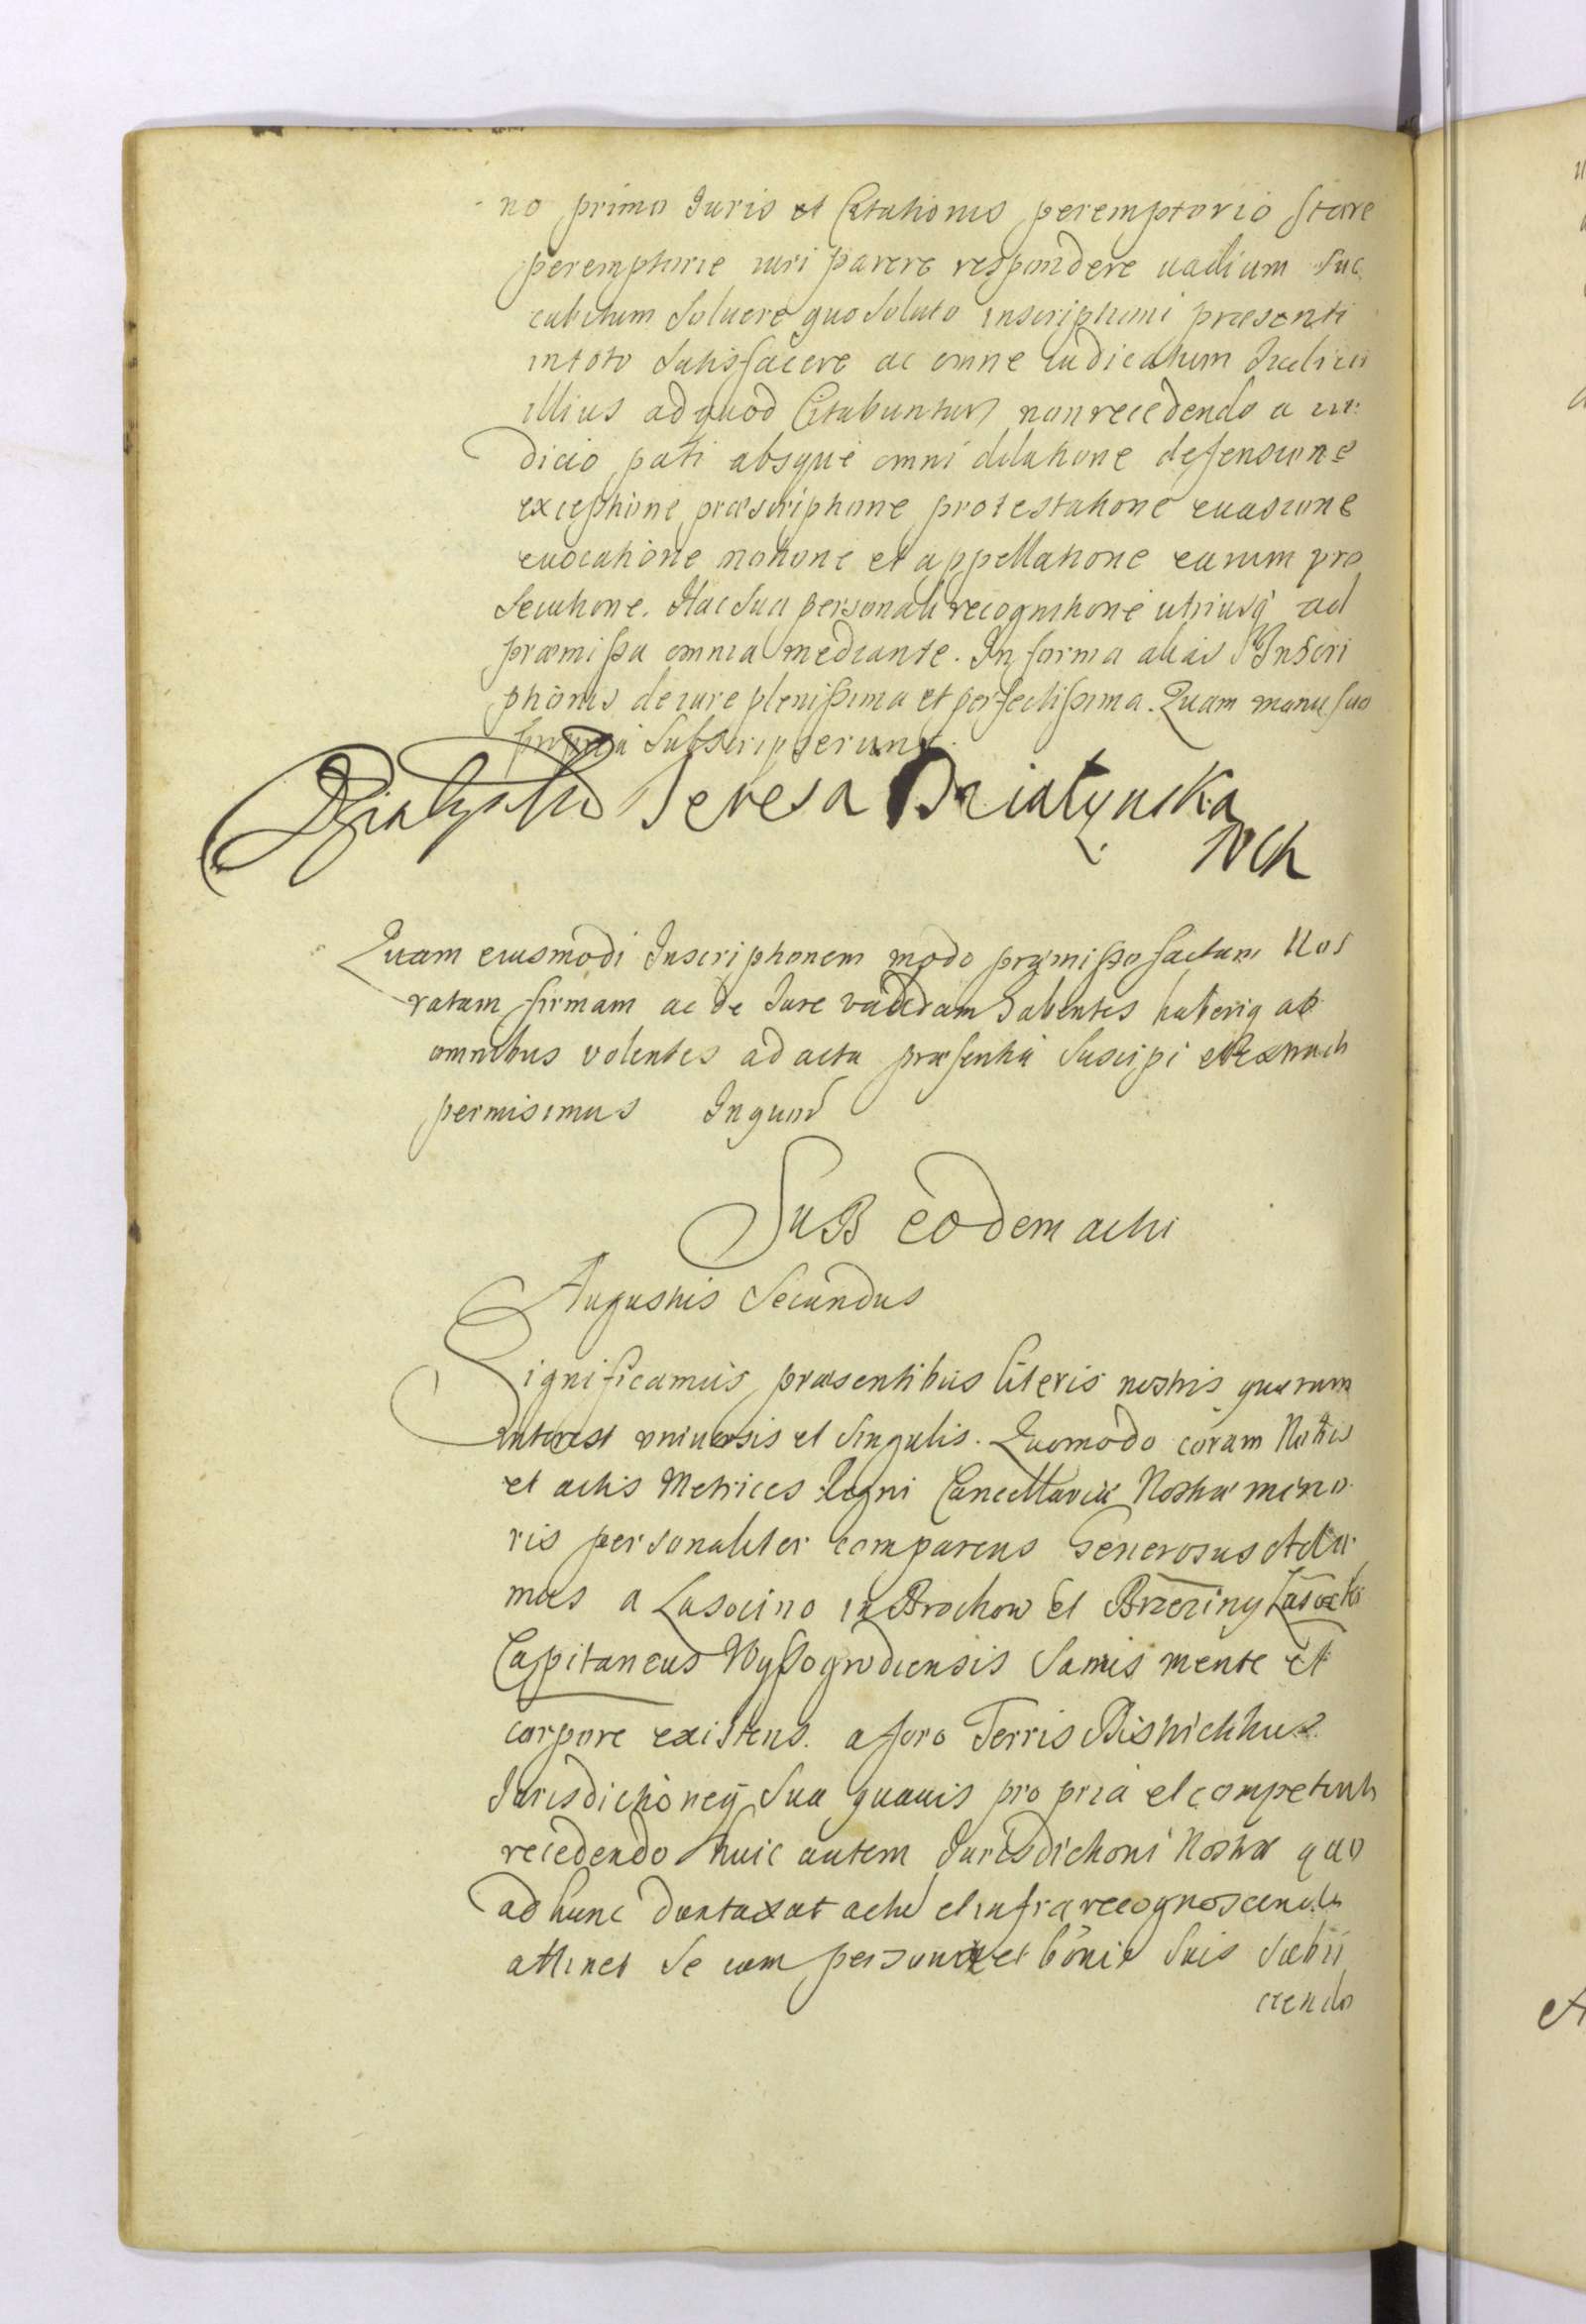 no primo Juris et Citationis peremptorio stare
peremptorie iuri parere respondere uadium suc
cubitum soluere quo soluto inscriptioni præsenti
in toto satisfacere ac omne iudicatum Iudicii
illius ad quod Citabuntur non recedendo a iu:
dicio pati absque omni dilatione defensione
exceptione præscriptione protestatione euasione
euocatione motione et appellatione earum pro
secutione. Hac sua personali recognitione utriusq ad
præmissa omnia mediante. In forma alias Inscri
ptionis de iure plenissima et perfectissima. Quam manu sua
propria subscripserunt.
Działyński Teresa Działynska
WCh
Quam eiusmodi Inscriptionem modo præmisso factam Nos
ratam firmam ac de Jure validam habentes haberiq ab
omnibus volentes ad acta præsentia suscipi et
permisimus In quor
SuB eodem actu
Augustus Secundus
Significamus præsentibus literis nostris quorum
interest vniuersis et singulis. Quomodo coram Nobis
et actis Metrices Regni Cancellariæ Nostræ mino
ris personaliter comparens Generosus Ada
mus a Lasocino in Brochow et Brzeziny Lasocki
Capitaneus Wyssogrodiensis Sanus mente et
corpore existens. a foro Terris Districtibus
Jurisdictioneq sua quauis propria et competenti
recedendo huic autem Jurisdictioni Nostræ quo
ad hunc duntaxat actu et infra recognoscenda
attinet se cum persona et bonis suis subii
ciendo